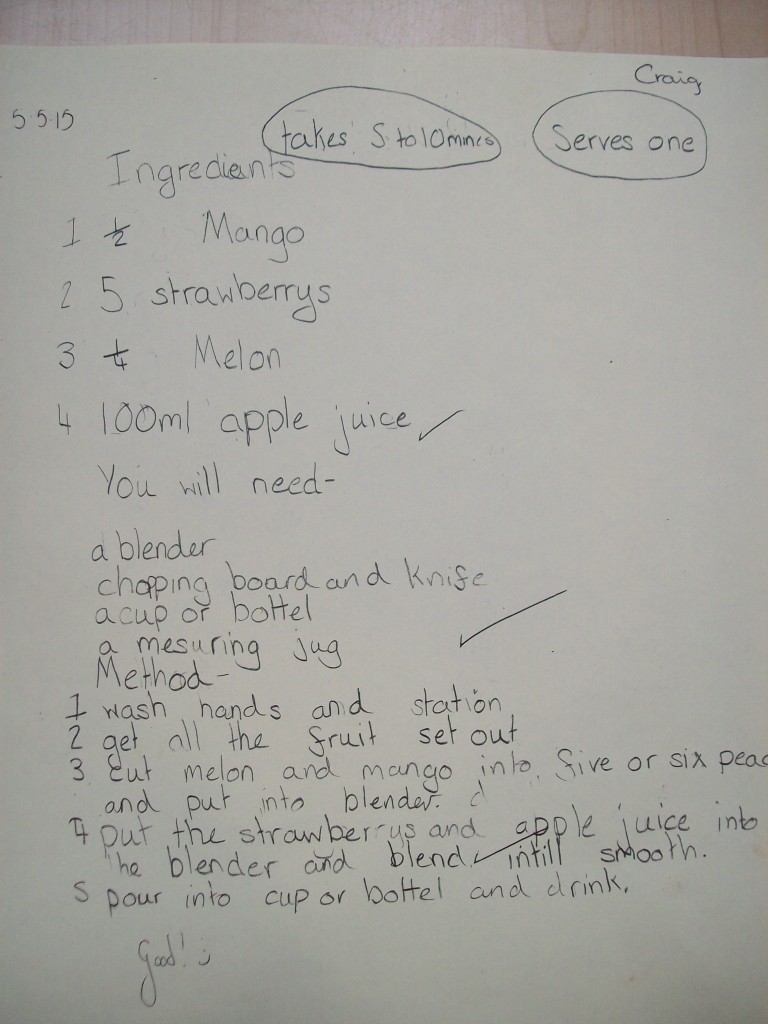 Craig
5.5.15
takes 5 to 10 mines
Serves one
Ingredients
1 ½ Mango
2 5 strawberrys
3 ¼ Melon
4 100ml apple juice
You will need-
a blender
chopping board and knife
a cup or bottel
a mesuring jug
Method-
1 wash hands and station
2 get all the fruit set out
3 cut melon and mango into five or six peac
and put into blender.
4 put the strawberrys and apple juice into
the blender and blend intill smooth.
5 pour into cup or bottel and drink.
Good!